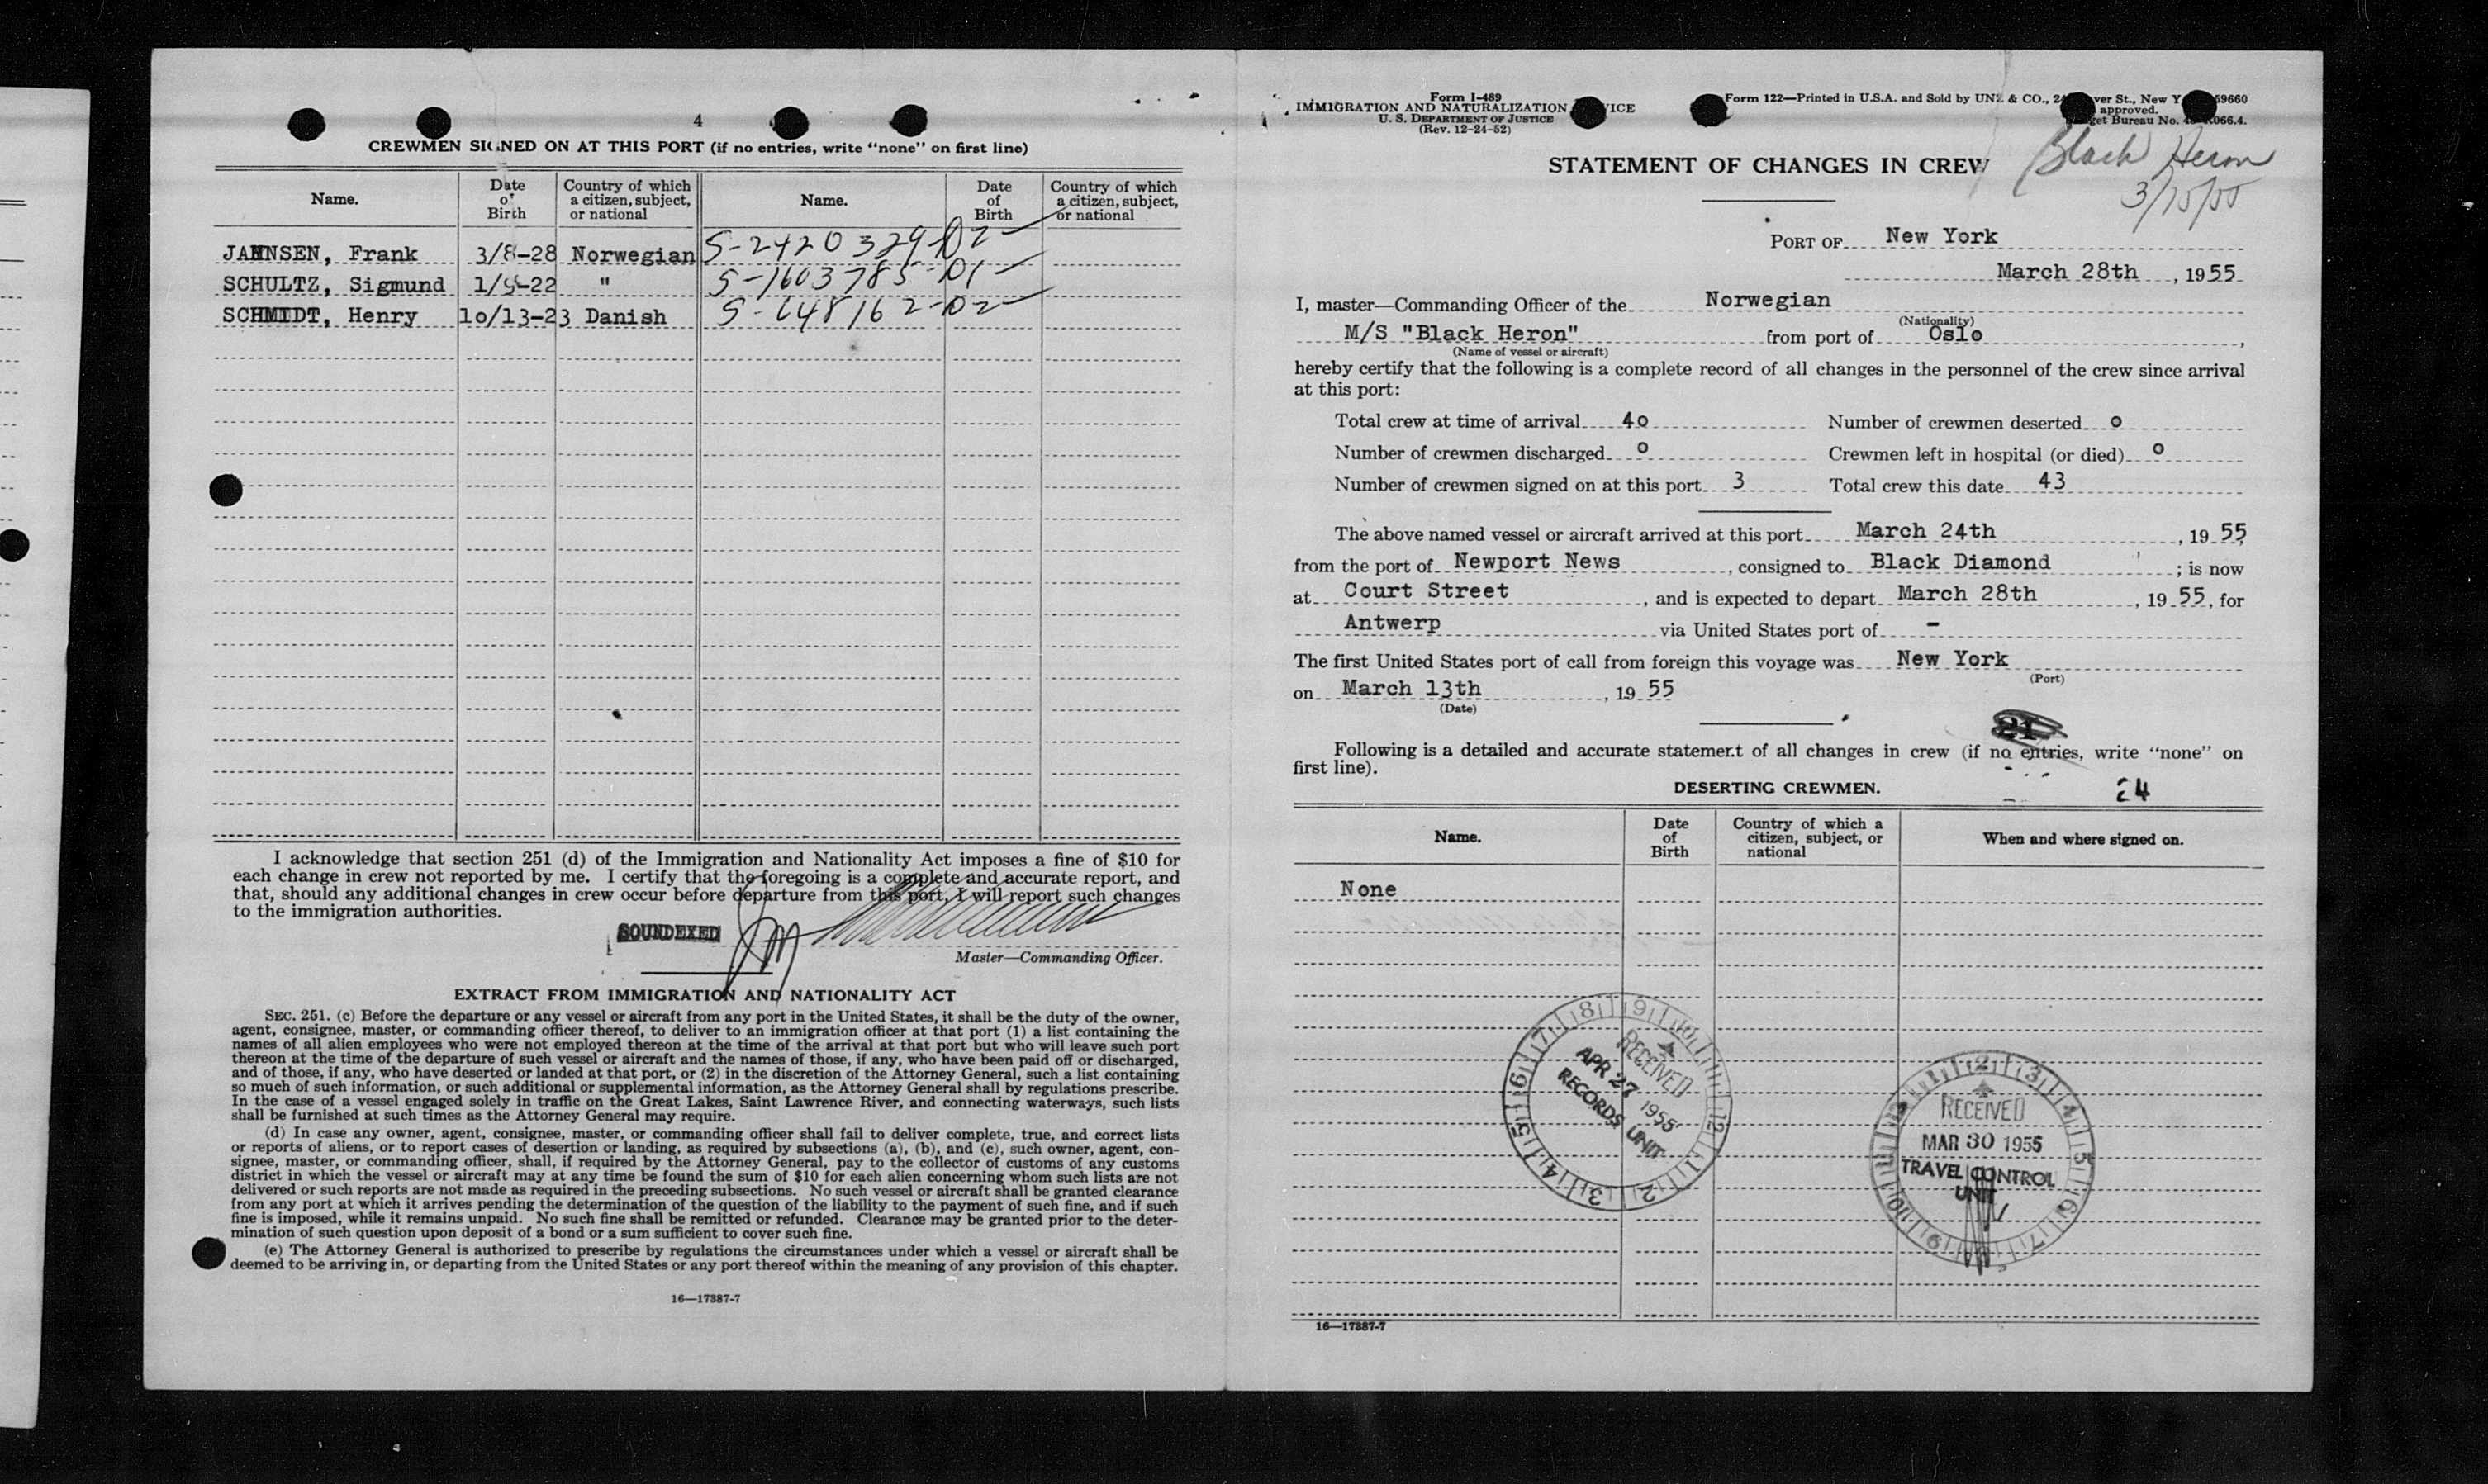 4
CREWMEN SIGNED ON AT THIS PORT (if no entries, write “none” on first line)
Name. Date of Birth Country of which a citizen, subject, or national Name. Date of Birth Country of which a citizen, subject, or national
JAHNSEN, Frank 3/8-28 Norwegian S-2420329-D2
SCHULTZ, Sigmund 1/ -22 " S-1603785-D1
SCHMIDT, Henry 1o/13-23 Danish S-648162-D2
I acknowledge that section 251 (d) of the Immigration and Nationality Act imposes a fine of $10 for
each change in crew not reported by me. I certify that the foregoing is a complete and accurate report, and
that, should any additional changes in crew occur before departure from this port, I will report such changes
to the immigration authorities.
SOUNDEXED
Master—Commanding Officer.
EXTRACT FROM IMMIGRATION AND NATIONALITY ACT
SEC. 251. (c) Before the departure or any vessel or aircraft from any port in the United States, it shall be the duty of the owner,
agent, consignee, master, or commanding officer thereof, to deliver to an immigration officer at that port (1) a list containing the
names of all alien employees who were not employed thereon at the time of the arrival at that port but who will leave such port
thereon at the time of the departure of such vessel or aircraft and the names of those, if any, who have been paid off or discharged,
and of those, if any, who have deserted or landed at that port, or (2) in the discretion of the Attorney General, such a list containing
so much of such information, or such additional or supplemental information, as the Attorney General shall by regulations prescribe.
In the case of a vessel engaged solely in traffic on the Great Lakes, Saint Lawrence River, and connecting waterways, such lists
shall be furnished at such times as the Attorney General may require.
(d) In case any owner, agent, consignee, master, or commanding officer shall fail to deliver complete, true, and correct lists
or reports of aliens, or to report cases of desertion or landing, as required by subsections (a), (b), and (c), such owner, agent, con-
signee, master, or commanding officer, shall, if required by the Attorney General, pay to the collector of customs of any customs
district in which the vessel or aircraft may at any time be found the sum of $10 for each alien concerning whom such lists are not
delivered or such reports are not made as required in the preceding subsections. No such vessel or aircraft shall be granted clearance
from any port at which it arrives pending the determination of the question of the liability to the payment of such fine, and if such
fine is imposed, while it remains unpaid. No such fine shall be remitted or refunded. Clearance may be granted prior to the deter-
mination of such question upon deposit of a bond or a sum sufficient to cover such fine.
(e) The Attorney General is authorized to prescribe by regulations the circumstances under which a vessel or aircraft shall be
deemed to be arriving in, or departing from the United States or any port thereof within the meaning of any provision of this chapter.
16—17387-7
Form I-489
IMMIGRATION AND NATURALIZATION
U. S. DEPARTMENT OF JUSTICE
(Rev. 12-24-52)
Form 122—Printed in U.S.A. and Sold by UNZ & CO., St., New 59660
approved.
Bureau No. 066.4.
Black Heron
3/15/55
STATEMENT OF CHANGES IN CREW
PORT OF New York
March 28th, 1955
I, master—Commanding Officer of the Norwegian
(Nationality)
M/S "Black Heron" from port of Oslo,
(Name of vessel or aircraft)
hereby certify that the following is a complete record of all changes in the personnel of the crew since arrival
at this port:
Total crew at time of arrival 4o Number of crewmen deserted o
Number of crewmen discharged o Crewmen left in hospital (or died) o
Number of crewmen signed on at this port 3 Total crew this date 43
The above named vessel or aircraft arrived at this port March 24th, 19 55
from the port of Newport News, consigned to Black Diamond; is now
at Court Street, and is expected to depart March 28th, 19 55, for
Antwerp via United States port of -
The first United States port of call from foreign this voyage was New York
(Port)
on March 13th, 19 55
(Date)
21
Following is a detailed and accurate statement of all changes in crew (if no entries, write “none” on
first line).
DESERTING CREWMEN.
24
Name. Date of Birth Country of which a citizen, subject, or national When and where signed on.
None
RECEIVED
APR 27 1955
RECORDS UNIT
RECEIVED
MAR 30 1955
TRAVEL CONTROL
UNIT
16—17387-7